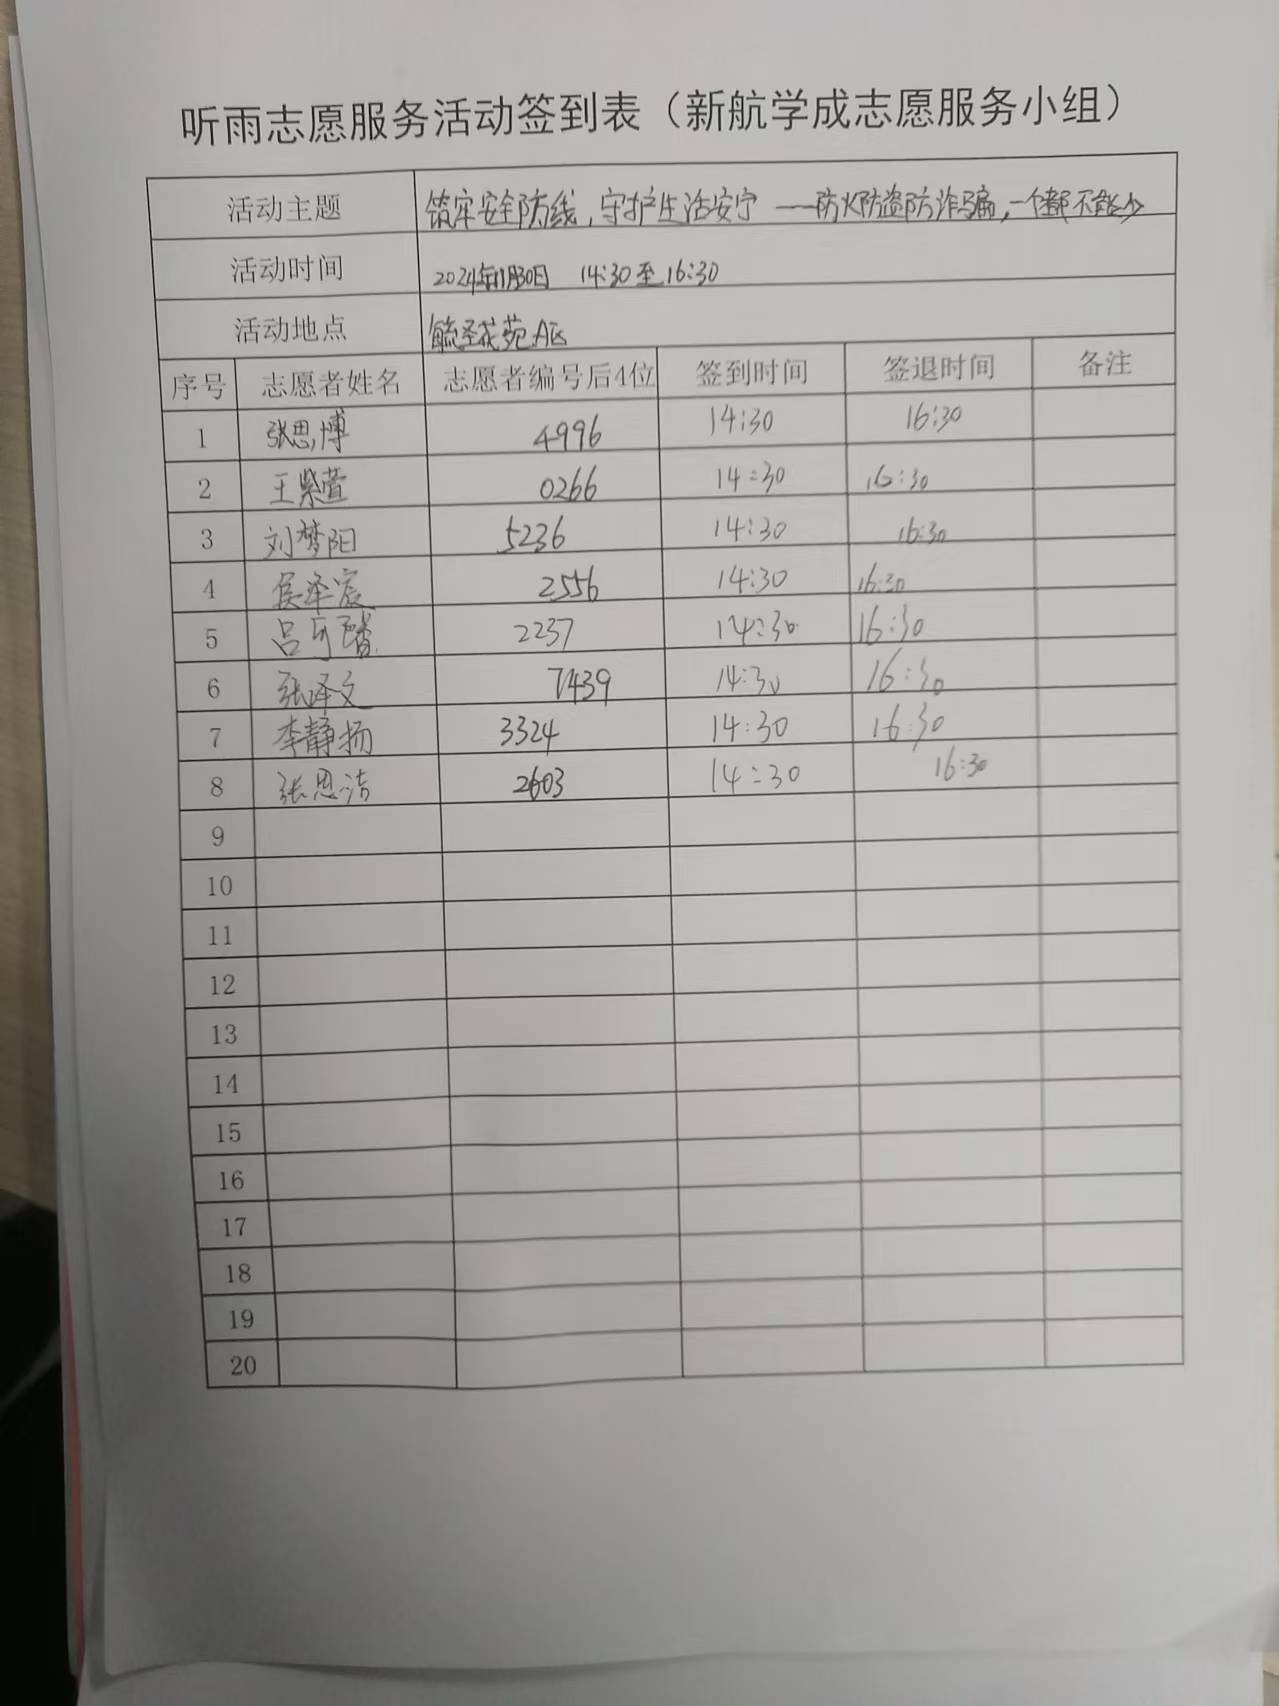 听雨志愿服务活动签到表（新航学成志愿服务小组）
活动主题 筑牢安全防线，守护生活安宁 ——防火防盗防诈骗，一个都不能少
活动时间 2024年11月30日 14:30至16:30
活动地点 毓圣花苑A区
序号 志愿者姓名 志愿者编号后4位 签到时间 签退时间 备注
1 张思博 4996 14:30 16:30
2 王紫萱 0266 14:30 16:30
3 刘梦阳 5236 14:30 16:30
4 侯泽宸 2556 14:30 16:30
5 吕可 2237 14:30 16:30
6 张泽文 7439 14:30 16:30
7 李静扬 3324 14:30 16:30
8 张恩洁 2603 14:30 16:30
9
10
11
12
13
14
15
16
17
18
19
20